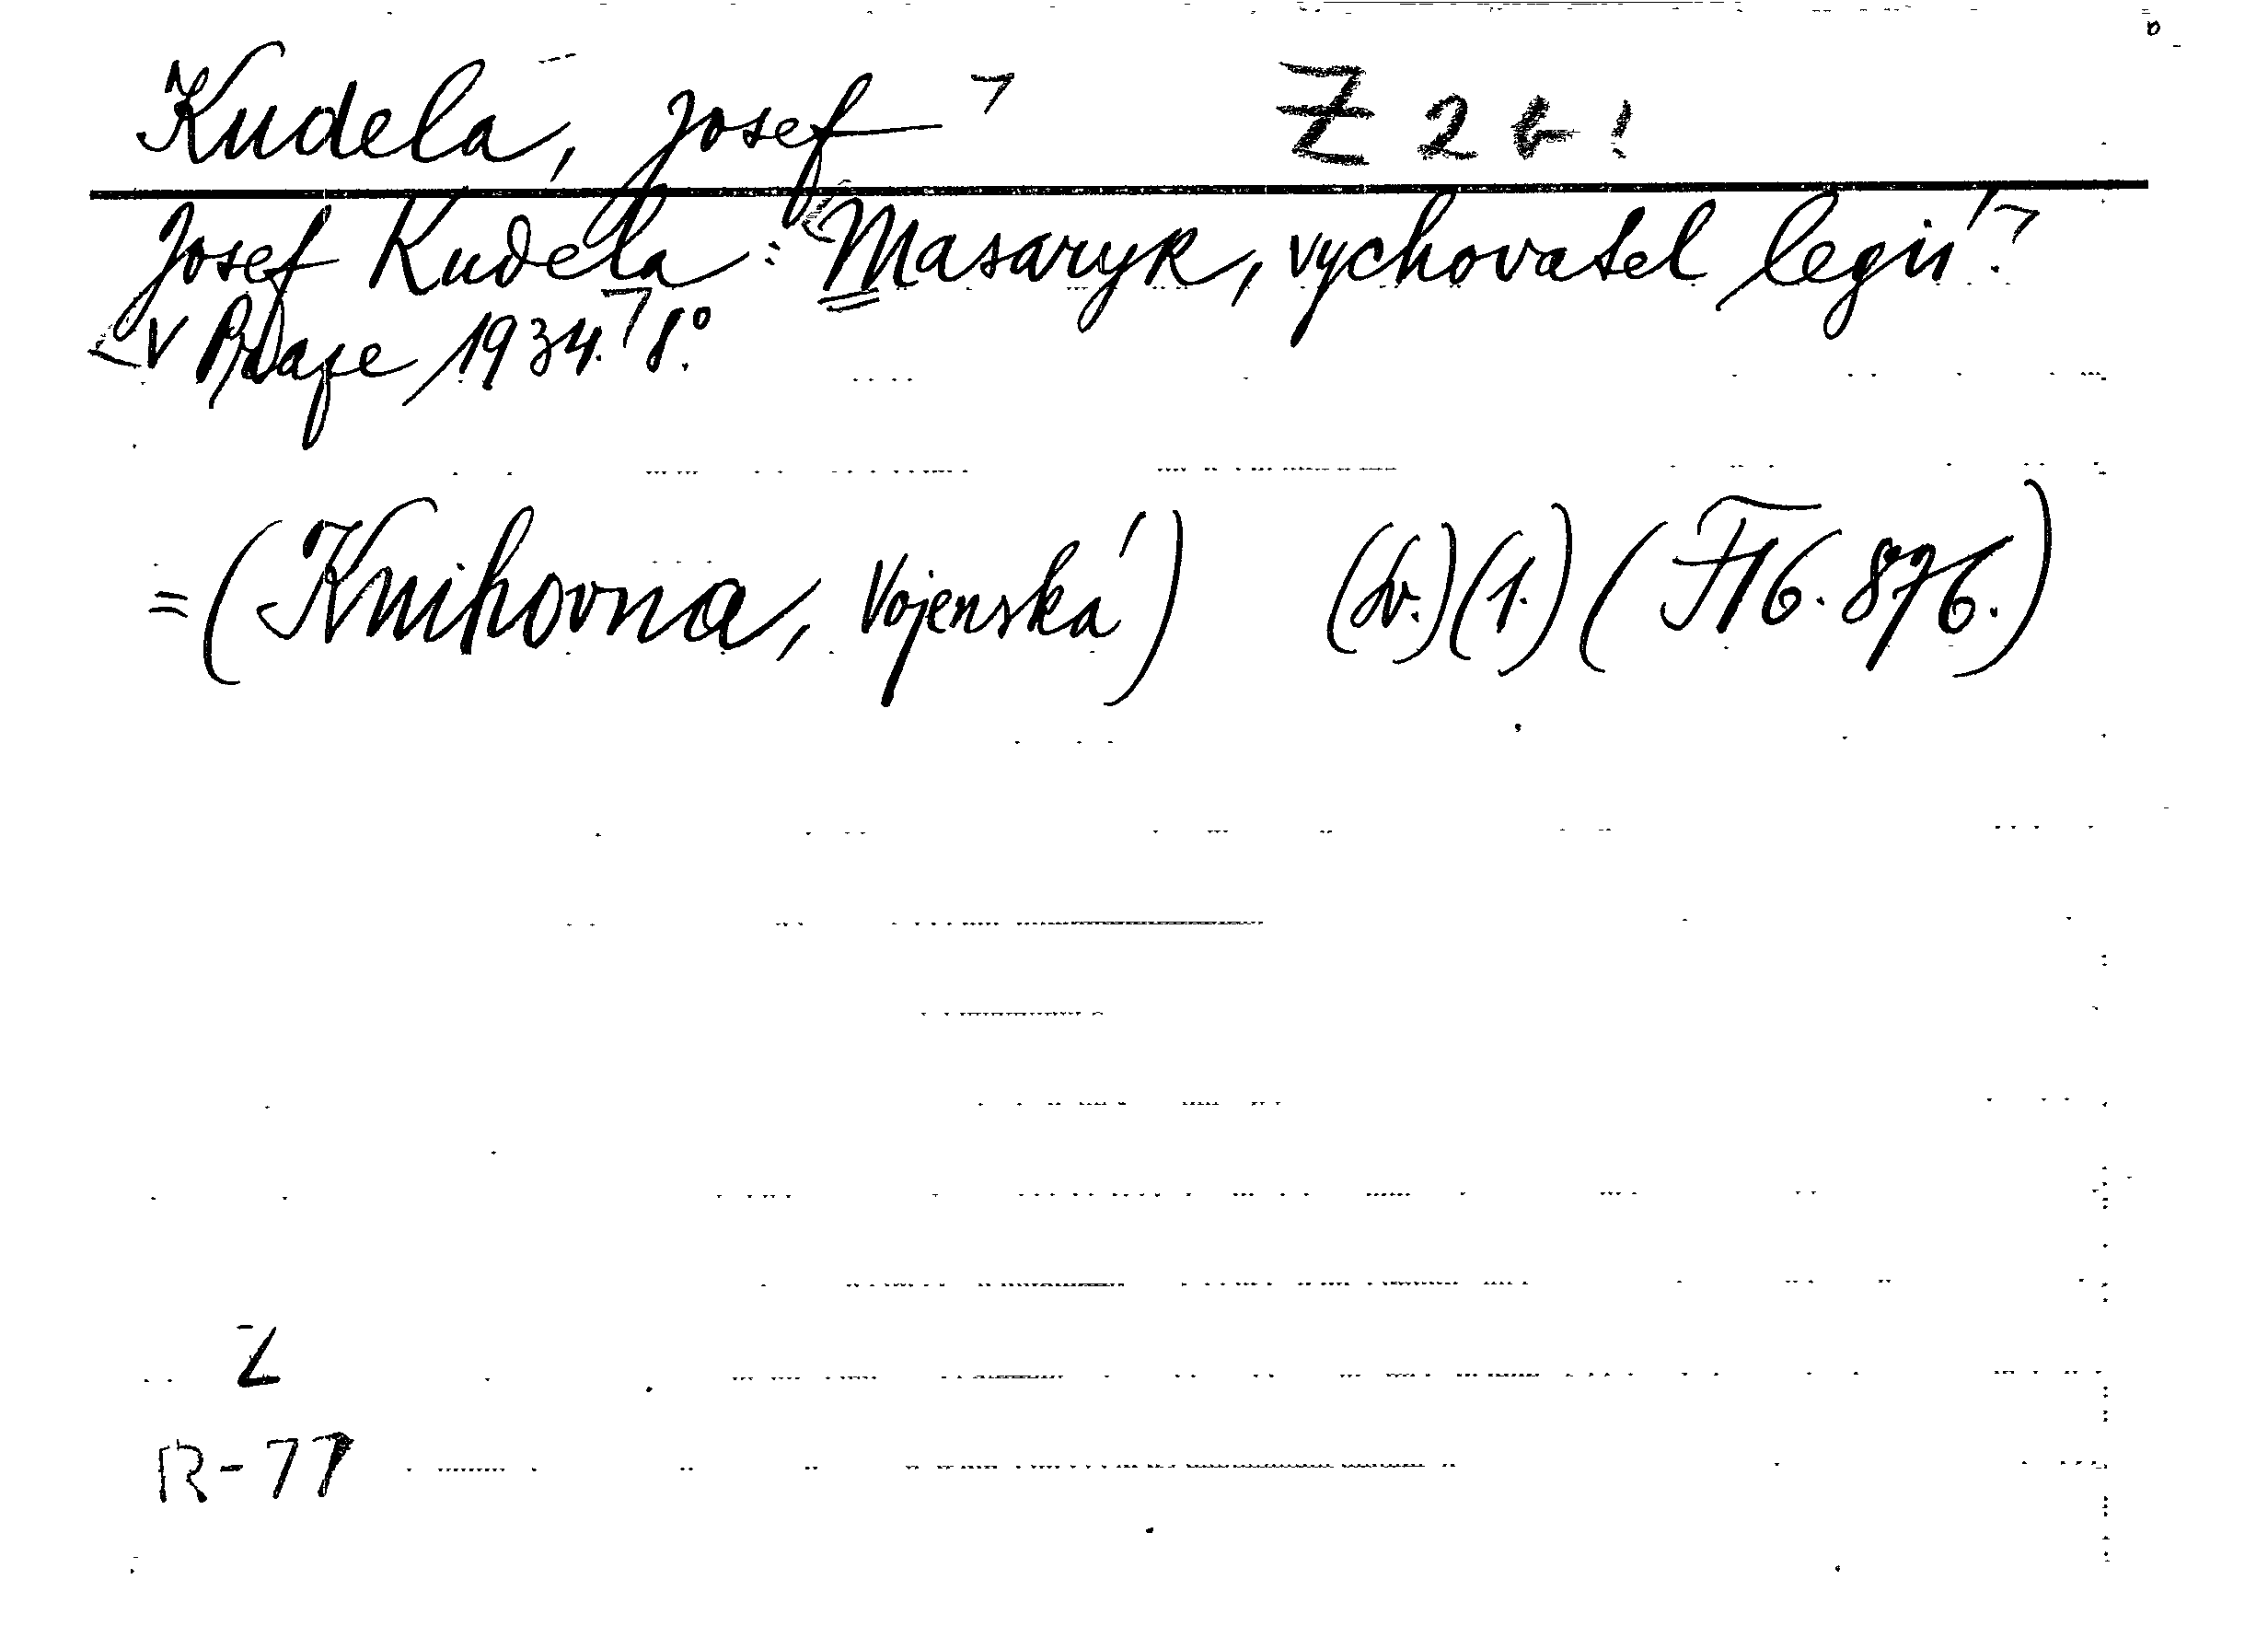 Kudela, Josef Z 2 b!
Josef Kudela: Masaryk, vychovatel legií.
V Praze 1934. 8°.
= (Knihovna, Vojenská) (sv.) (1.) (F 16.876.)
Z
R-77